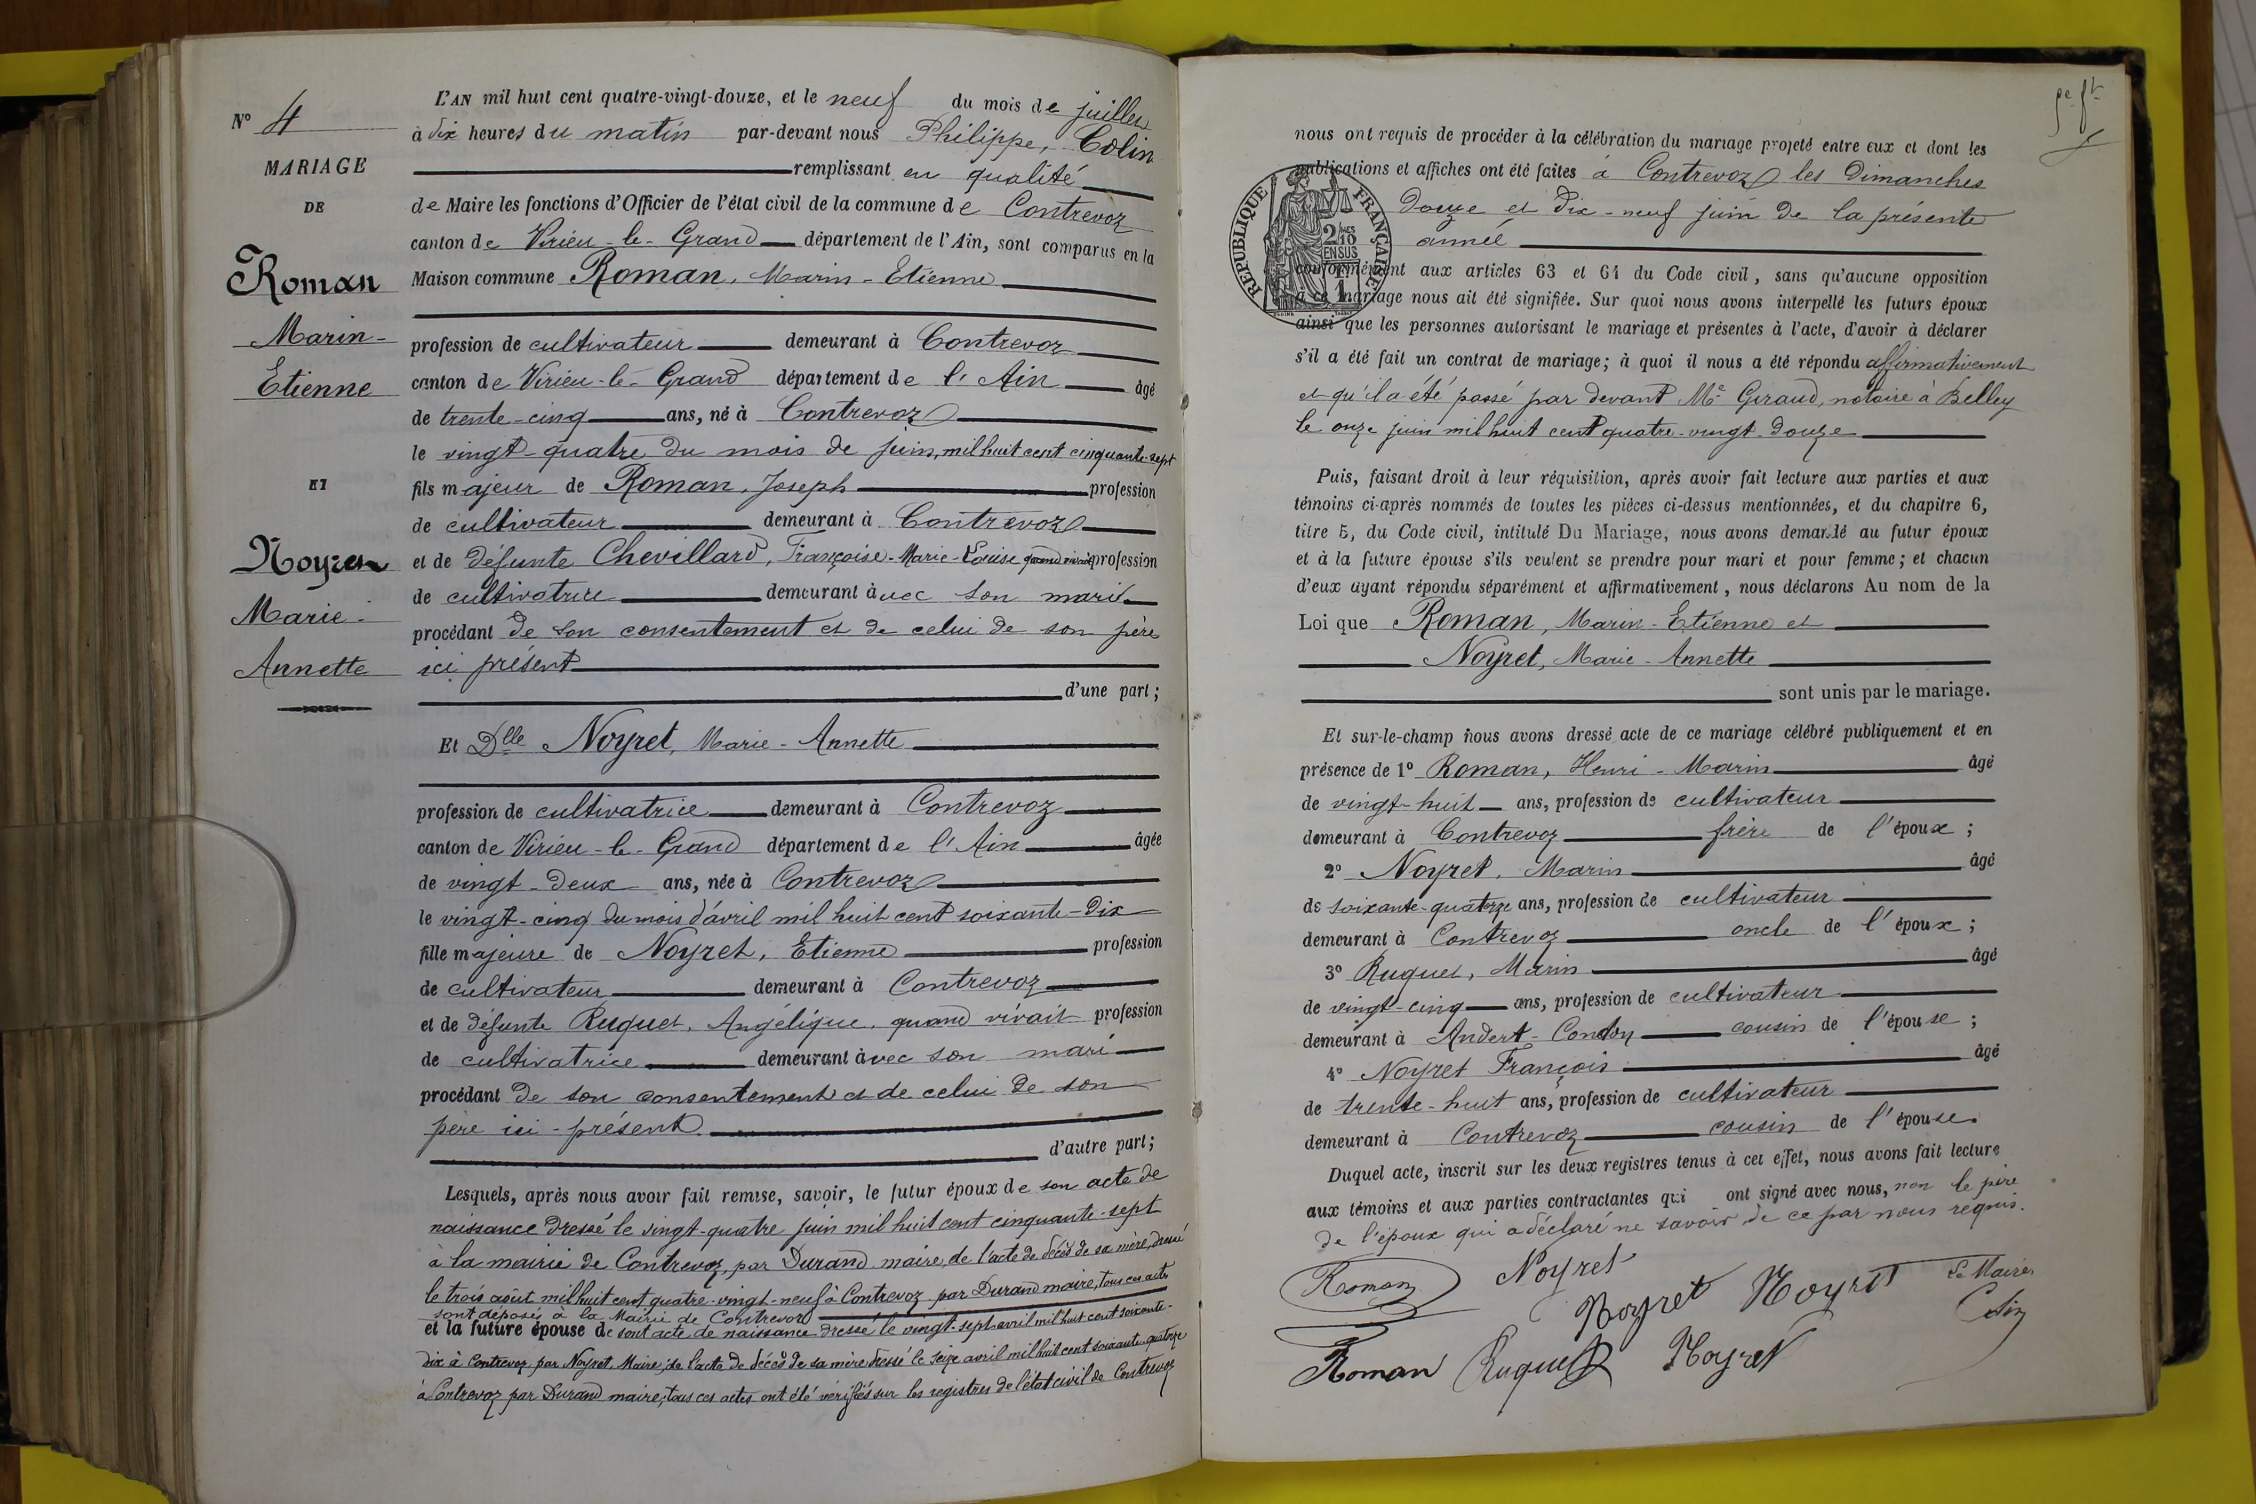 N° 4
MARIAGE
DE
Roman
Marin-
Etienne
ET
Noyret
Marie-
Annette
L'AN mil huit cent quatre-vingt-douze, et le neuf du mois de juillet
à dix heures du matin par-devant nous Philippe, Colin
remplissant en qualité
de Maire les fonctions d'Officier de l'état civil de la commune de Contrevoz
canton de Virieu-le-Grand département de l'Ain, sont comparus en la
Maison commune Roman, Marin-Etienne
profession de cultivateur demeurant à Contrevoz
canton de Virieu-le-Grand département de l'Ain âgé
de trente-cinq ans, né à Contrevoz
le vingt-quatre du mois de juin, mil huit cent cinquante-sept
fils majeur de Roman, Joseph profession
de cultivateur demeurant à Contrevoz
et de défunte Chevillard, Françoise-Marie-Louise quand vivait profession
de cultivatrice demeurant avec son mari
procédant de son consentement et de celui de son père
ici présent
d'une part;
Et Dlle Noyret, Marie-Annette
profession de cultivatrice demeurant à Contrevoz
canton de Virieu-le-Grand département de l'Ain âgée
de vingt-deux ans, née à Contrevoz
le vingt-cinq du mois d'avril mil huit cent soixante-dix
fille majeure de Noyret, Etienne profession
de cultivateur demeurant à Contrevoz
et de défunte Ruguet, Angélique, quand vivait profession
de cultivatrice demeurant avec son mari
procédant de son consentement et de celui de son
père ici-présent.
d'autre part;
Lesquels, après nous avoir fait remise, savoir, le futur époux de son acte de
naissance dressé le vingt-quatre juin mil huit cent cinquante-sept
à la mairie de Contrevoz, par Durand maire, de l'acte de décès de sa mère, dressé
le trois août mil huit cent quatre-vingt-neuf à Contrevoz par Durand maire, tous ces actes
sont déposés à la Mairie de Contrevoz
et la future épouse de sont acte de naissance dressé le vingt-sept avril mil huit cent soixante-
dix à Contrevoz par Noyret Maire, de l'acte de décès de sa mère dressé le seize avril mil huit cent soixante-quatorze
à Contrevoz par Durand maire, tous ces actes ont été vérifiés sur les registres de l'état civil de Contrevoz
5e ft
nous ont requis de procéder à la célébration du mariage projeté entre eux et dont les
publications et affiches ont été faites à Contrevoz les Dimanches
douze et dix-neuf juin de la présente
année
REPUBLIQUE FRANÇAISE
2/10 EN SUS
1
conformément aux articles 63 et 64 du Code civil, sans qu'aucune opposition
à ce mariage nous ait été signifiée. Sur quoi nous avons interpellé les futurs époux
ainsi que les personnes autorisant le mariage et présentes à l'acte, d'avoir à déclarer
s'il a été fait un contrat de mariage; à quoi il nous a été répondu affirmativement
et qu'il a été passé par devant Me Giraud, notaire à Belley
le onze juin mil huit cent quatre-vingt-douze
Puis, faisant droit à leur réquisition, après avoir fait lecture aux parties et aux
témoins ci-après nommés de toutes les pièces ci-dessus mentionnées, et du chapitre 6,
titre 5, du Code civil, intitulé Du Mariage, nous avons demandé au futur époux
et à la future épouse s'ils veulent se prendre pour mari et pour femme; et chacun
d'eux ayant répondu séparément et affirmativement, nous déclarons Au nom de la
Loi que Roman, Marin-Etienne et
Noyret, Marie-Annette
sont unis par le mariage.
Et sur-le-champ nous avons dressé acte de ce mariage célébré publiquement et en
présence de 1° Roman, Henri-Marin âgé
de vingt-huit ans, profession de cultivateur
demeurant à Contrevoz frère de l'époux;
2° Noyret, Marin âgé
de soixante-quatorze ans, profession de cultivateur
demeurant à Contrevoz oncle de l'époux;
3° Ruguet, Marin âgé
de vingt-cinq ans, profession de cultivateur
demeurant à Andert-Condon cousin de l'épouse;
4° Noyret François âgé
de trente-huit ans, profession de cultivateur
demeurant à Contrevoz cousin de l'épouse.
Duquel acte, inscrit sur les deux registres tenus à cet effet, nous avons fait lecture
aux témoins et aux parties contractantes qui ont signé avec nous, non le père
de l'époux qui a déclaré ne savoir de ce par nous requis.
Roman Noyret Noyret Noyret Le Maire
Colin
Roman Ruguet Noyret